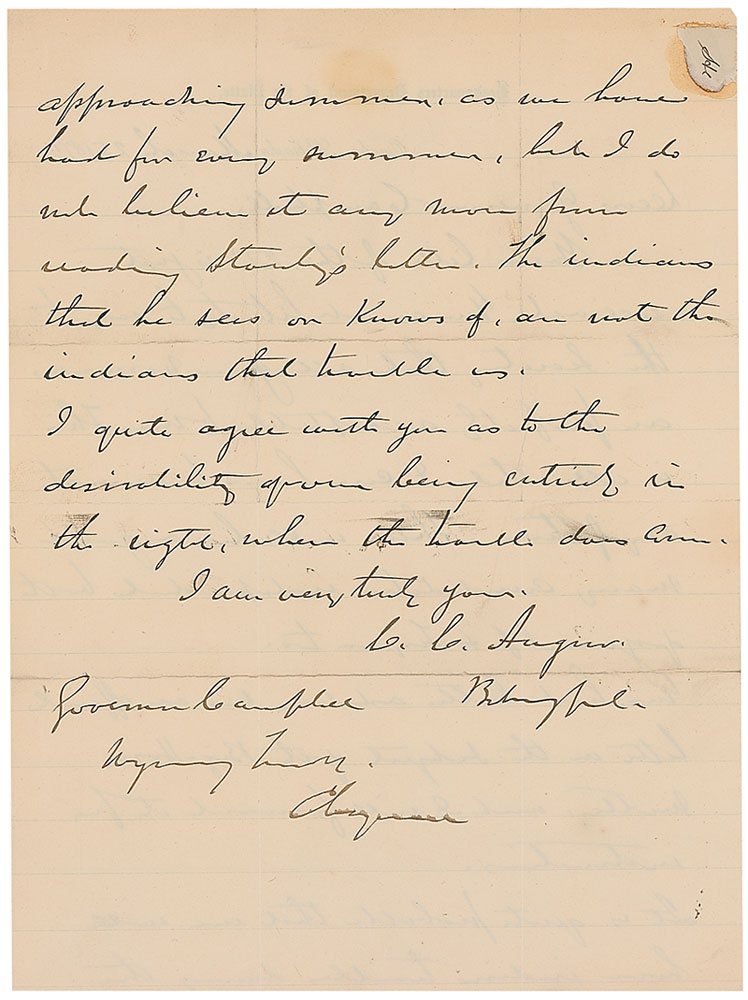 approaching summer, as we have
had for every summer, but I do
not believe it any more from
reading Stanley's letter. The indians
that he sees or Knows of, are not the
indians that trouble us.
I quite agree with you as to the
desirability of our being entirely in
the right, when the trouble does come.
I am very truly yours.
C. C. Augur.
Governor Campbell
Wyoming Terr.
Cheyenne